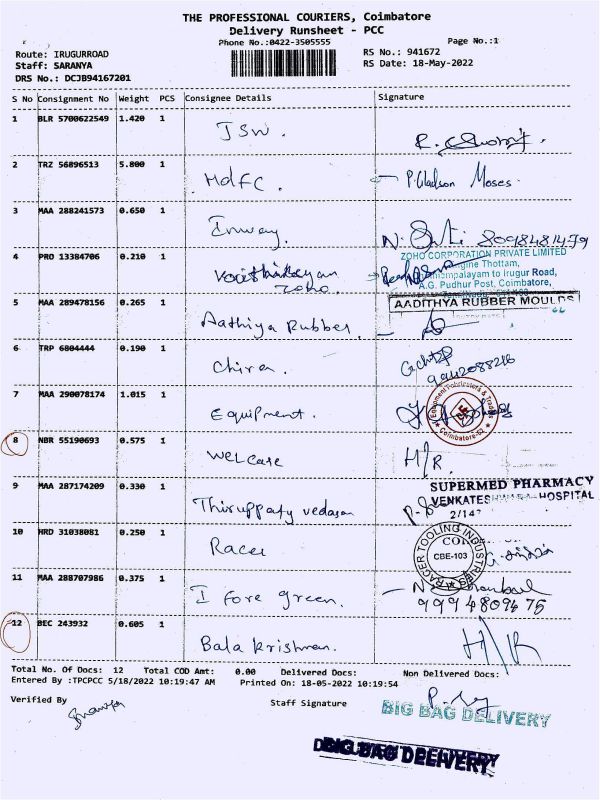 THE PROFESSIONAL COURIERS, Coimbatore
Delivery Runsheet - PCC
Phone No.:0422-3505555
Page No.:1
Route: IRUGURROAD
Staff: SARANYA
DRS No.: DCJB94167201
RS No.: 941672
RS Date: 18-May-2022
S No Consignment No Weight PCS Consignee Details Signature
1 BLR 5700622549 1.420 1 JSW.
2 TRZ 56896513 5.800 1 HdFC. P. Gladson Moses
3 MAA 288241573 0.650 1 Inway. 8098481479
4 PRO 13384706 0.210 1 Zoho
ZOHO CORPORATION PRIVATE LIMITED
Thottam,
to Irugur Road,
A.G. Pudhur Post, Coimbatore,
5 MAA 289478156 0.265 1 Aathiya Rubber.
AADITHYA RUBBER MOULDS
6 TRP 6804444 0.190 1 Chira. 9942088216
7 MAA 290078174 1.015 1 Equipment.
Coimbatore-62
8 NBR 55190693 0.575 1 Welcare H/R.
9 MAA 287174209 0.330 1 Thiruppaty vedasan
SUPERMED PHARMACY
VENKATESHWARA HOSPITAL
2/147
10 HRD 31038081 0.250 1 Racer
RACER TOOLING INDUSTRIES
CBE-103
11 MAA 288707986 0.375 1 I fore green.
9994809475
12 BEC 243932 0.605 1 Bala Krishnan. H/R
Total No. Of Docs: 12 Total COD Amt: 0.00 Delivered Docs: Non Delivered Docs:
Entered By :TPCPCC 5/18/2022 10:19:47 AM Printed On: 18-05-2022 10:19:54
Verified By Staff Signature
BIG BAG DELIVERY
BIG BAG DELIVERY